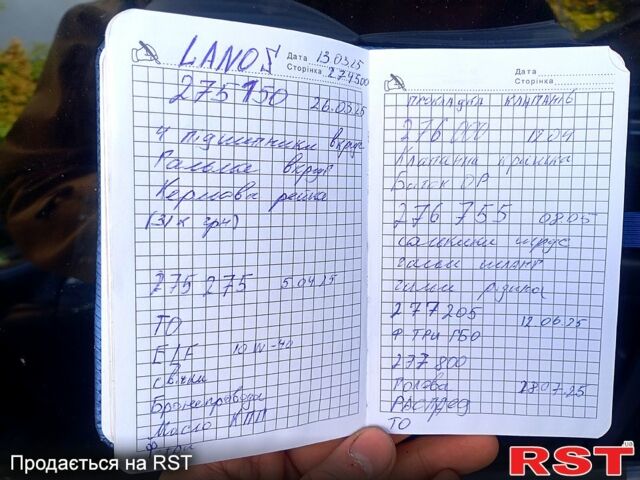 LANOS
Дата 13.03.25
Сторінка 274500
275150 26.03.25
4 підшипники вкруг
Гальма вкруг
Кермова рейка
(31к грн)
275 275 5.04.25
ТО
ELF 10W-40
свічки
Бронепроводи
Масло КПП
Дата
Сторінка
прокладка клапанів
276 000 18.04
Клапанна кришка
Бачок ОР
276 755 08.05
сальники шрус
гальм шланг
гальм рідина
277205 12.06.25
Ф ТРИ ГБО
277 800
Голова 28.07.25
РАСПРЕД
ТО
Продається на RST
RST